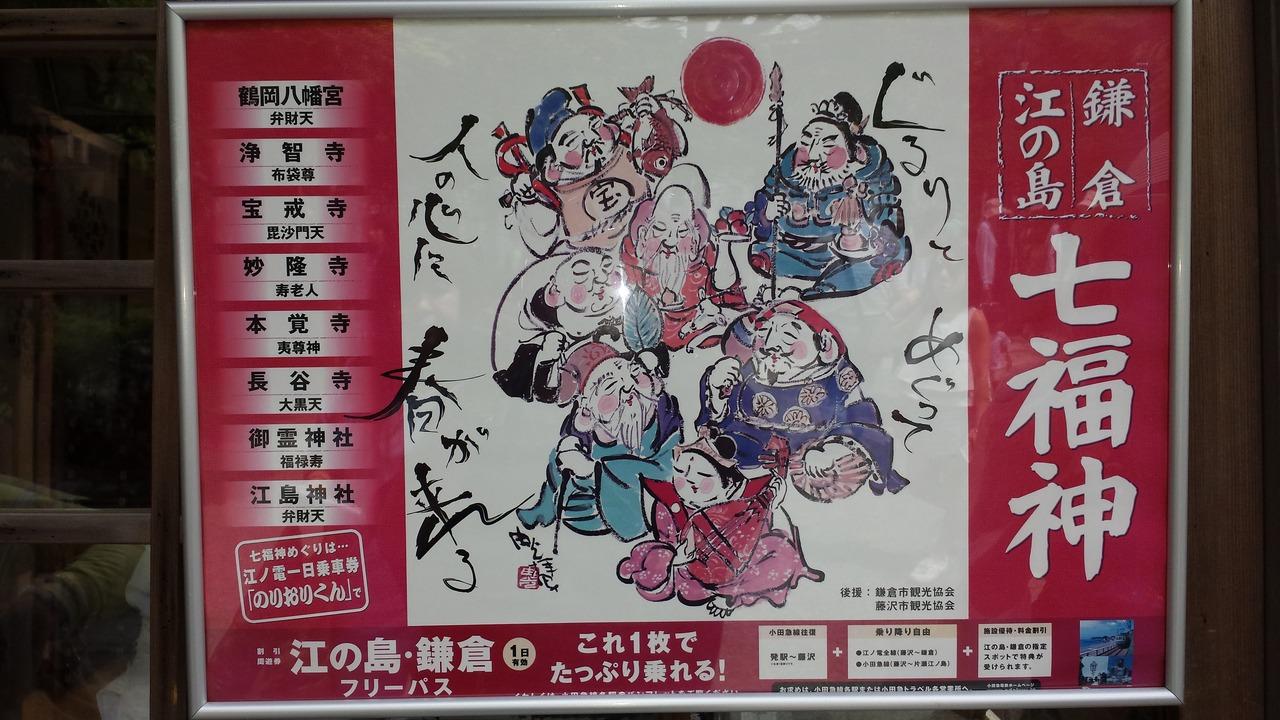 鎌倉
江の島
七福神
ぐるりと
めぐって
人の心に
春が来る
宝
鶴岡八幡宮
弁財天
浄智寺
布袋尊
宝戒寺
毘沙門天
妙隆寺
寿老人
本覚寺
夷尊神
長谷寺
大黒天
御霊神社
福禄寿
江島神社
弁財天
七福神めぐりは…
江ノ電一日乗車券
「のりおりくん」で
後援：鎌倉市観光協会
藤沢市観光協会
割引
周遊券
江の島・鎌倉
フリーパス
1日
有効
これ1枚で
たっぷり乗れる!
小田急線往復
発駅～藤沢
+
乗り降り自由
●江ノ電全線(藤沢～鎌倉)
●小田急線(藤沢～片瀬江ノ島)
+
施設優待・料金割引
江の島・鎌倉の指定
スポットで特典が
受けられます。
お求めは、小田急線各駅または小田急トラベル各営業所へ